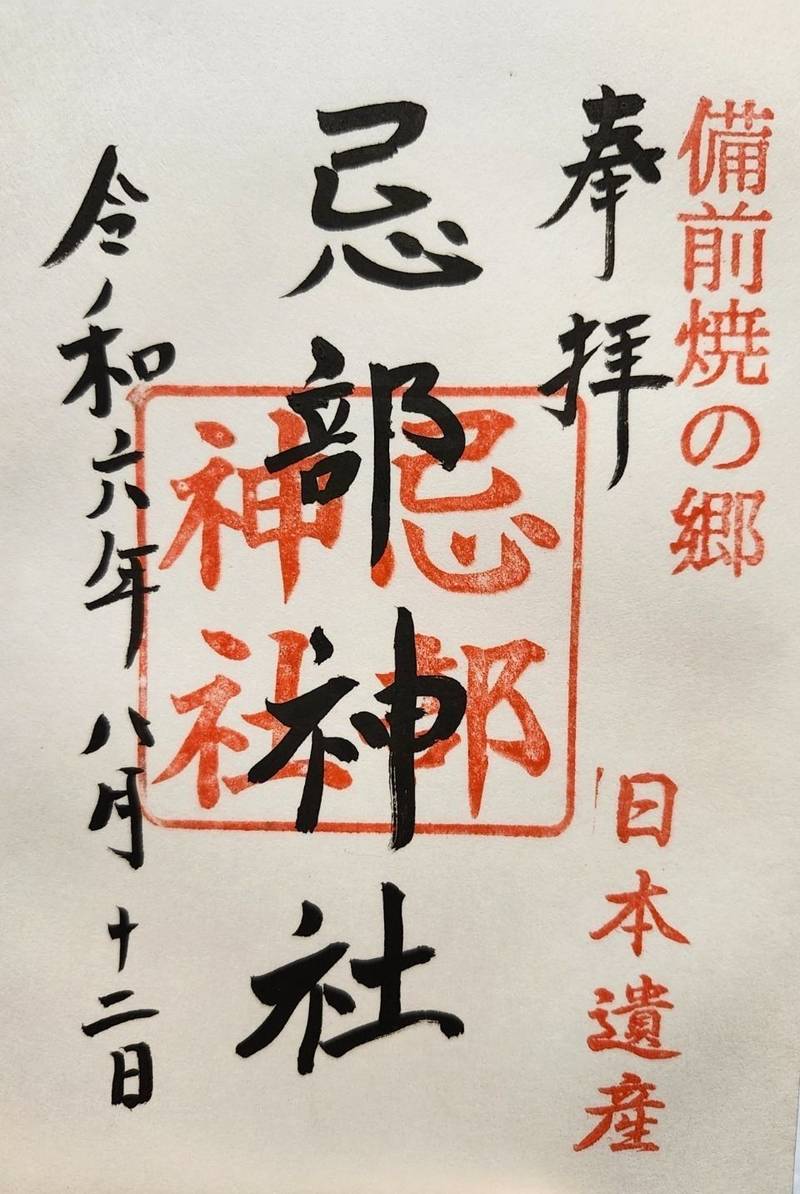 備前焼の郷
日本遺産
奉拝
忌部神社
忌部
神社
令和六年八月十二日